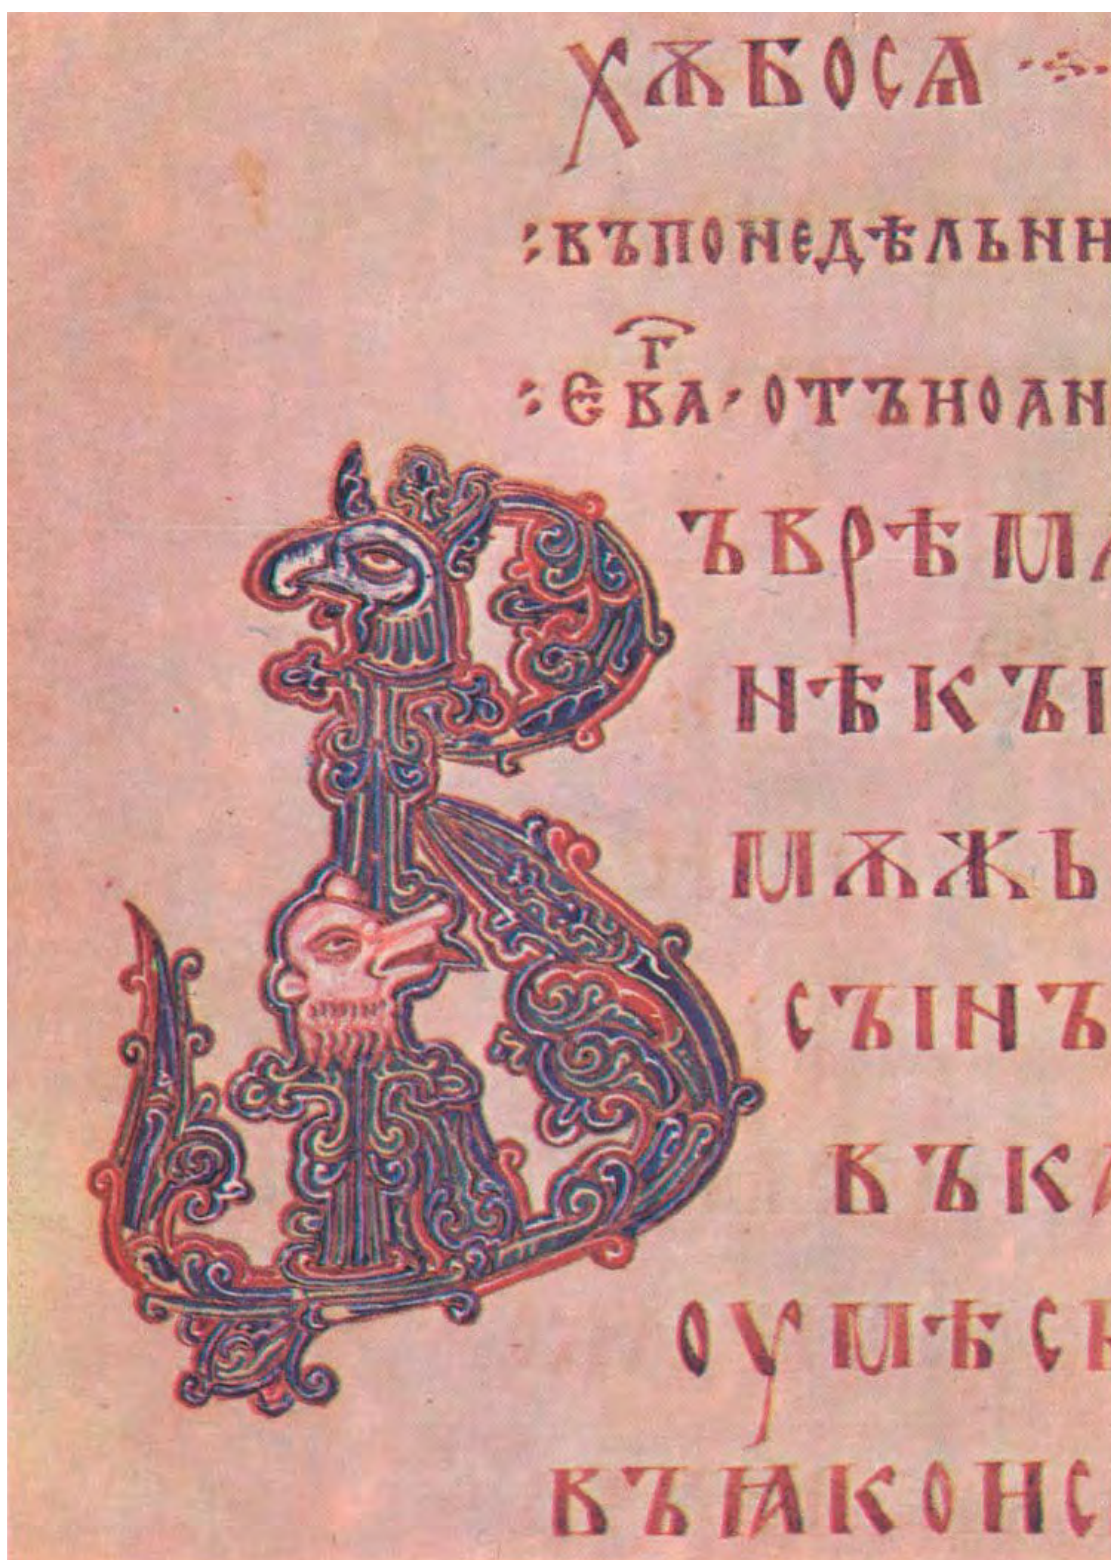 хѫбосѧ
:въпонедѣльни
:ЄвⷢА · отъиоан
Въврѣмѧ
нѣкъі
мѫжь
съінъ
въка
оумѣсь
въꙗкоис